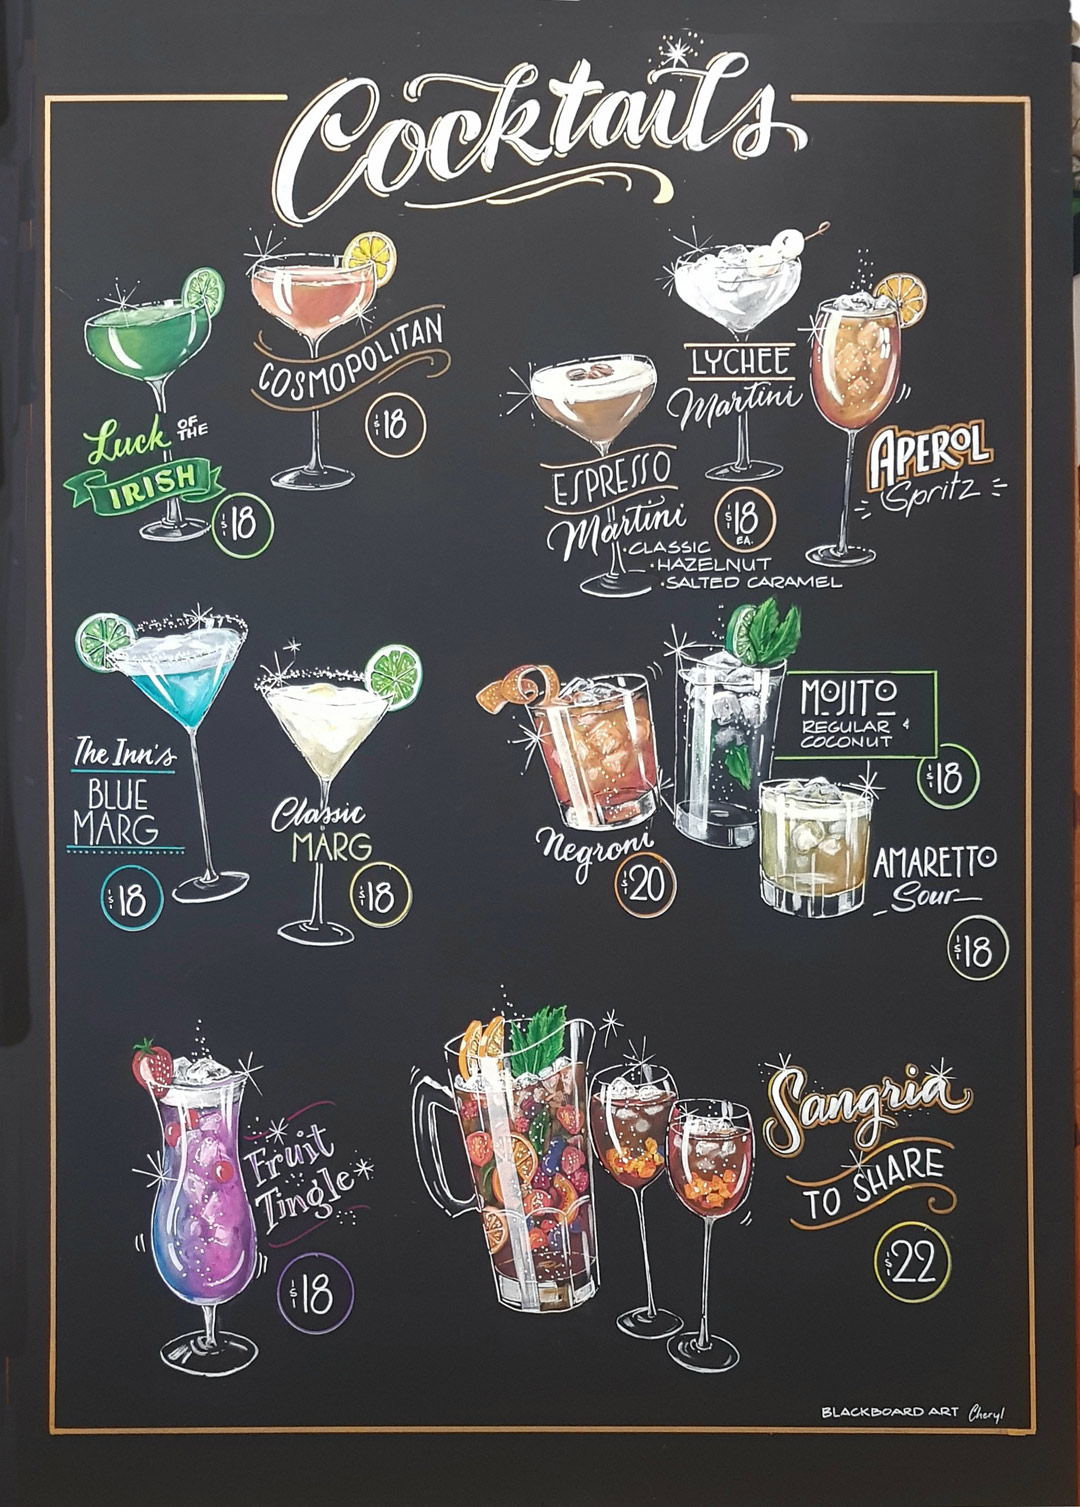 Cocktails
COSMOPOLITAN
$18
Luck OF THE
IRISH
$18
LYCHEE
Martini
ESPRESSO
Martini
$18
EA.
• CLASSIC
• HAZELNUT
• SALTED CARAMEL
APEROL
Spritz
The Inn's
BLUE
MARG
$18
Classic
MARG
$18
Negroni
$20
MOJITO
REGULAR &
COCONUT
$18
AMARETTO
Sour
$18
Fruit
Tingle
$18
Sangria
TO SHARE
$22
BLACKBOARD ART Cheryl